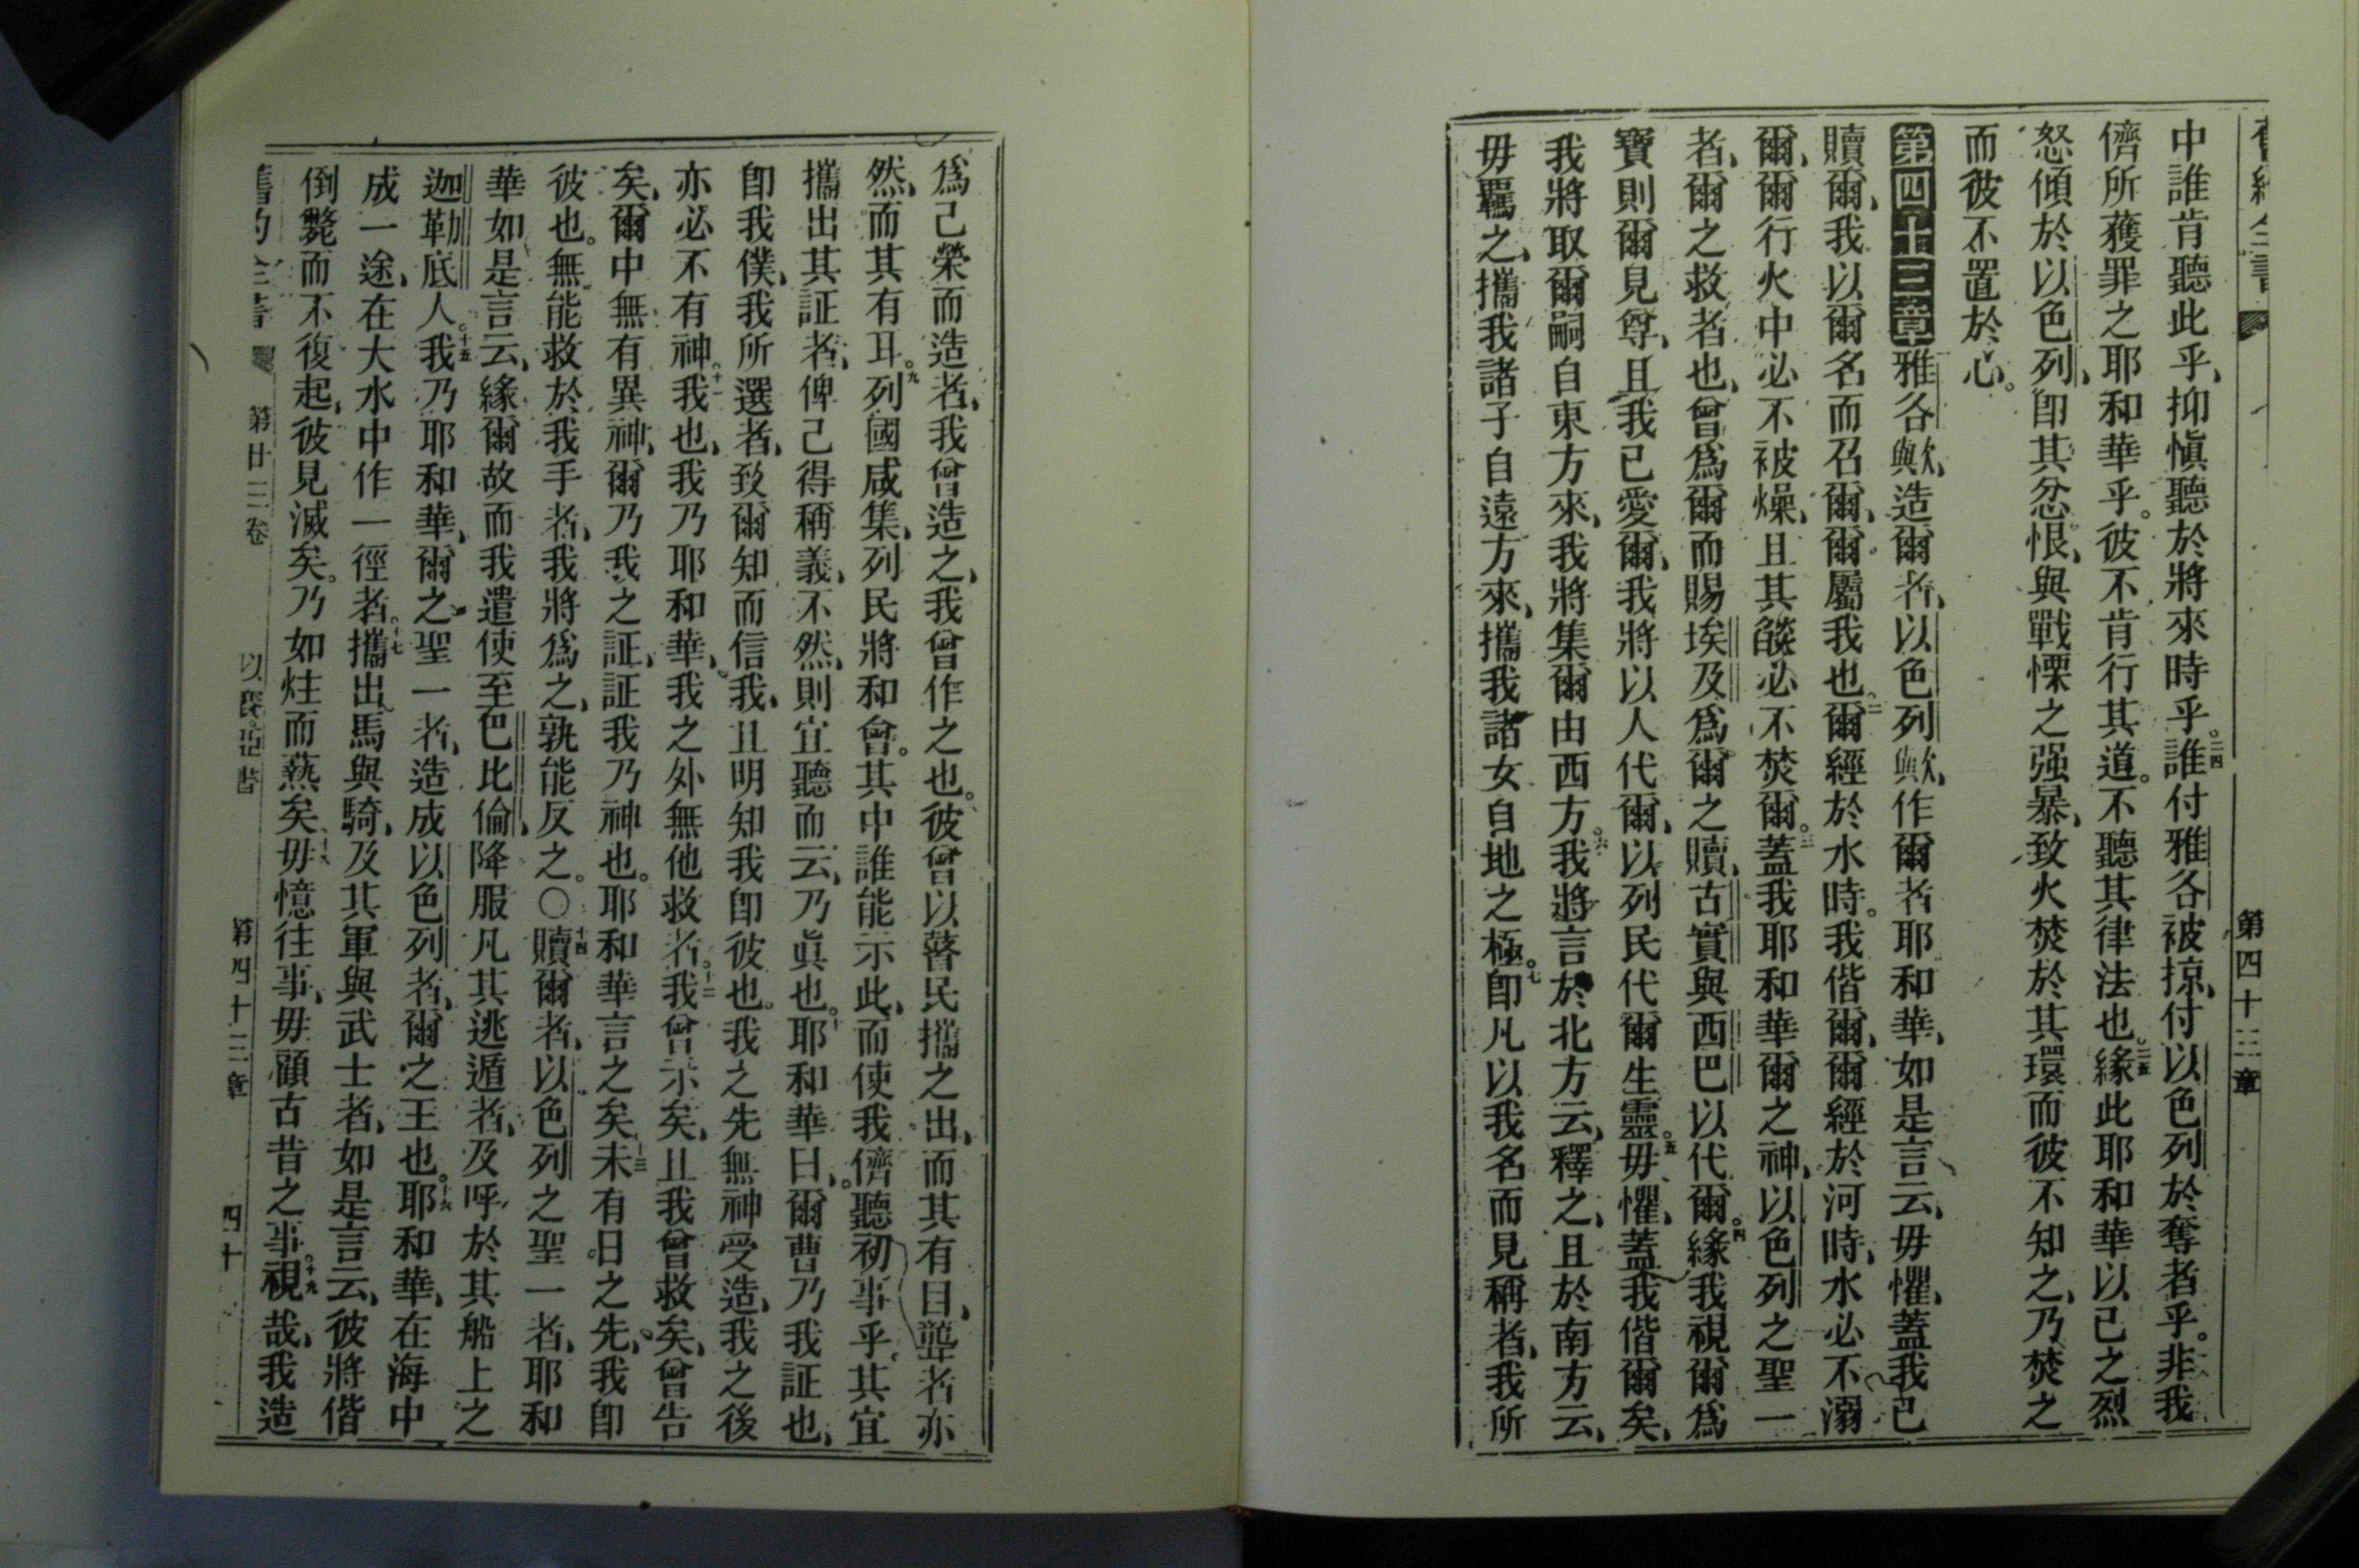 第四十三章
中誰肯聽此乎、抑愼聽於將來時乎。二四誰付雅各被掠、付以色列於奪者乎。非我
儕所獲罪之耶和華乎。彼不肯行其道。不聽其律法也。二五緣此耶和華以己之烈
怒傾於以色列、卽其忿恨、與戰慄之强暴、致火焚於其環而彼不知之、乃焚之
而彼不置於心。
第四十三章雅各歟、造爾者、以色列歟、作爾者耶和華、如是言云、毋懼、蓋我已
贖爾、我以爾名而召爾、爾屬我也。二爾經於水時。我偕爾、爾經於河時、水必不溺
爾、爾行火中必不被燥、且其燄必不焚爾。三蓋我耶和華爾之神、以色列之聖一
者、爾之救者也、曾爲爾而賜埃及爲爾之贖、古實與西巴以代爾。四緣我視爾爲
寶則爾見尊、且我已愛爾、我將以人代爾、以列民代爾生靈。五毋懼、蓋我偕爾矣、
我將取爾嗣自東方來、我將集爾由西方。六我將言於北方云、釋之、且於南方云、
毋羈之、攜我諸子自遠方來、攜我諸女自地之極。七卽凡以我名而見稱者、我所
爲己榮而造者、我曾造之、我曾作之也。彼曾以瞽民攜之出、而其有目、聾者亦
然、而其有耳。九列國咸集、列民將和會。其中誰能示此、而使我儕聽初事乎。其宜
攜出其証者、俾己得稱義、不然、則宜聽而云、乃眞也。十耶和華曰、爾曹乃我証也、
卽我僕、我所選者、致爾知而信我、且明知我卽彼也。我之先無神受造、我之後
亦必不有神。十一我也、我乃耶和華、我之外無他救者。十二我曾示矣、且我曾救矣、曾告
矣、爾中無有異神、爾乃我之証、証我乃神也。耶和華言之矣十三未有日之先、我卽
彼也。無能救於我手者、我將爲之、孰能反之。〇十四贖爾者、以色列之聖一者、耶和
華如是言云、緣爾故而我遣使至巴比倫、降服凡其逃遁者、及呼於其船上之
迦勒底人。十五我乃耶和華、爾之聖一者、造成以色列者、爾之王也。十六耶和華、在海中
成一途、在大水中作一徑者。十七攜出馬與騎、及其軍與武士者、如是言云、彼將偕
倒斃而不復起、彼見滅矣。乃如炷而爇矣、十八毋憶往事、毋顧古昔之事。十九視哉、我造
舊約全書 第廿三卷 以賽亞書 第四十三章 四十